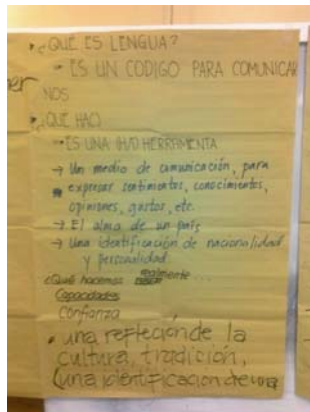 ¿QUÉ ES LENGUA?
- ES UN CODIGO PARA COMUNICAR
NOS
¿QUE HACI
- ES UNA HERRAMENTA
→ Un medio de comunicación, para
expresar sentimientos, conocimientos,
opiniones, gustos, etc.
→ El alma de un país
→ Una identificación de nacionalidad
y personalidad.
realmente
¿Qué hacemos ...
Capacidades
Confianza
• una reflección de la
cultura, tradición,
(una identificación de una